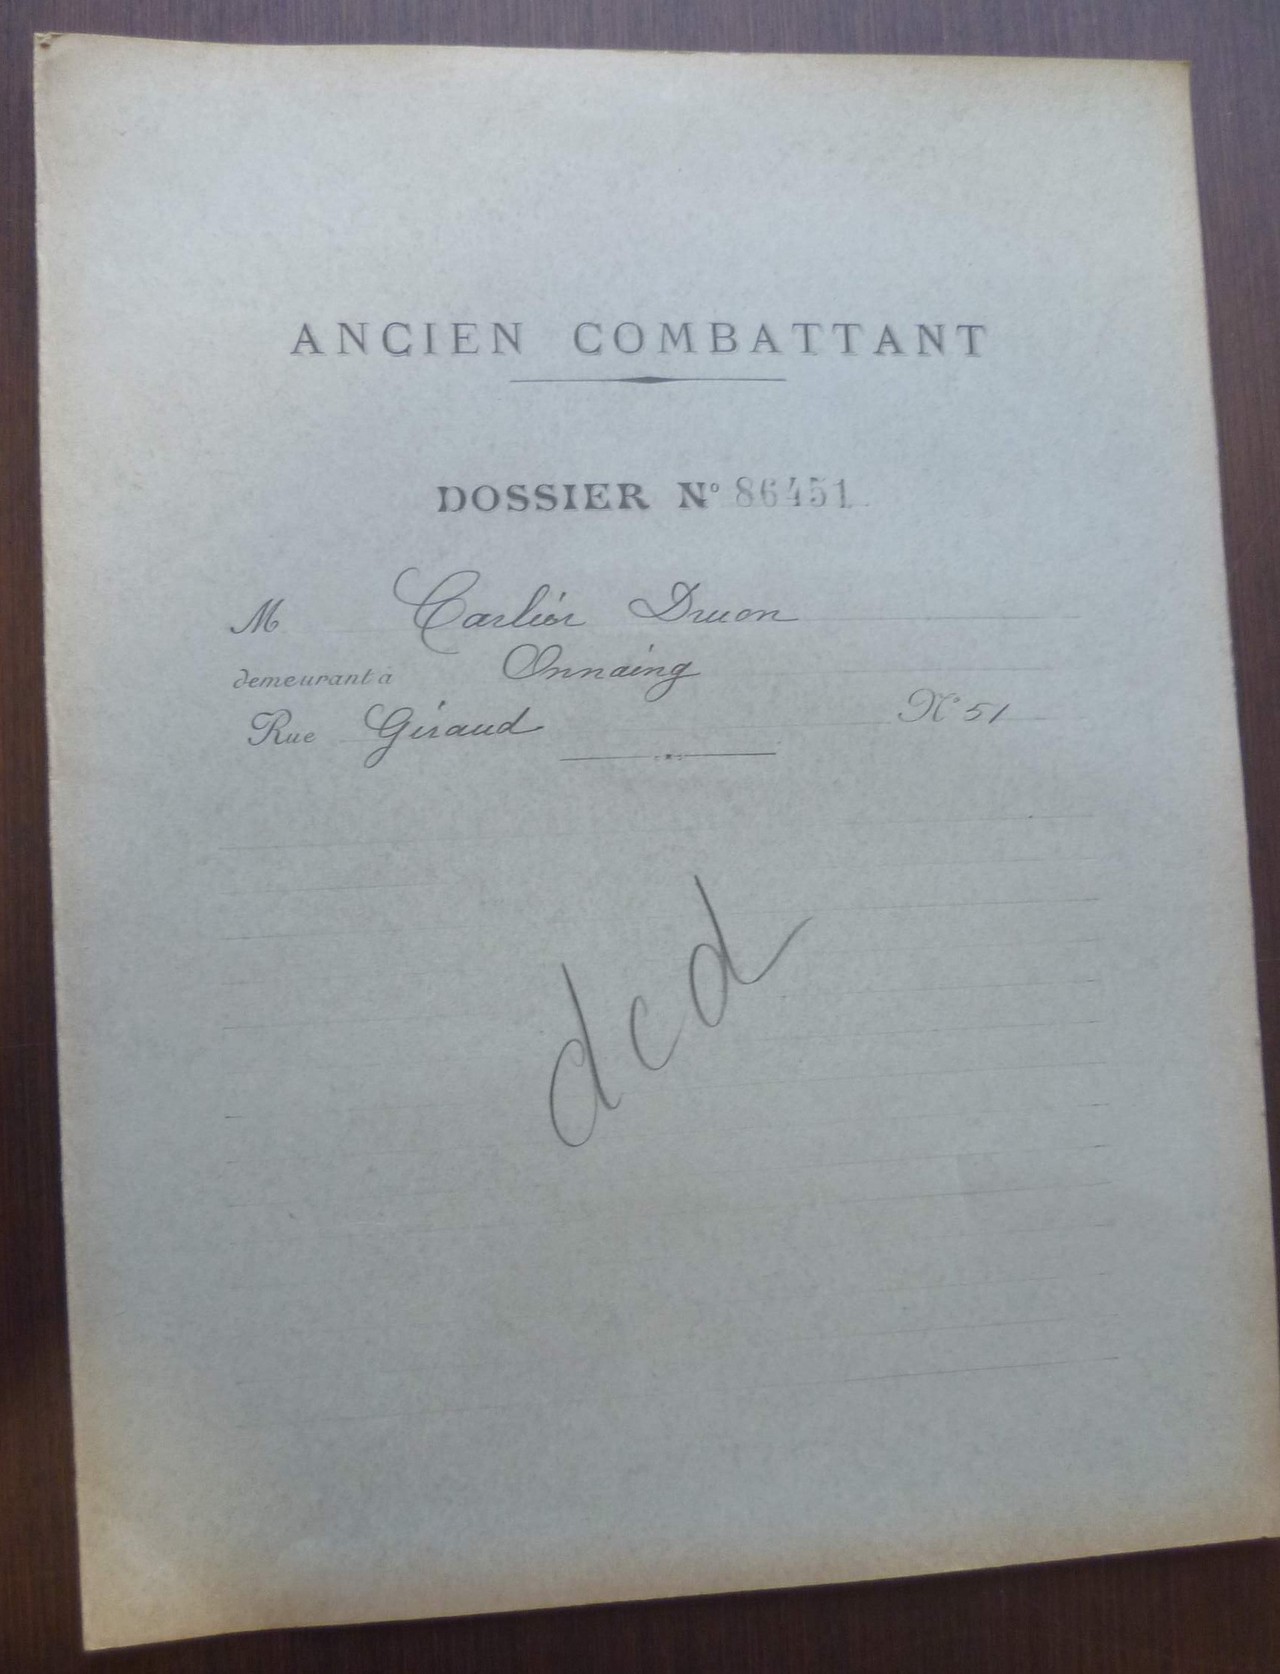 ANCIEN COMBATTANT
DOSSIER N° 86451
M Carlier Druon
demeurant à Onnaing
Rue Giraud N° 51
dcd